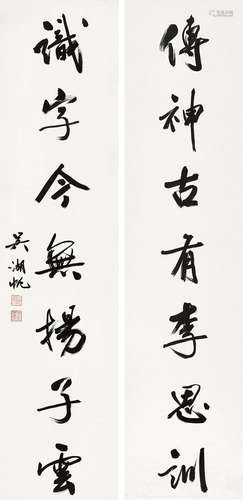 傳神古有李思訓
識字今無揚子雲
吳湖帆